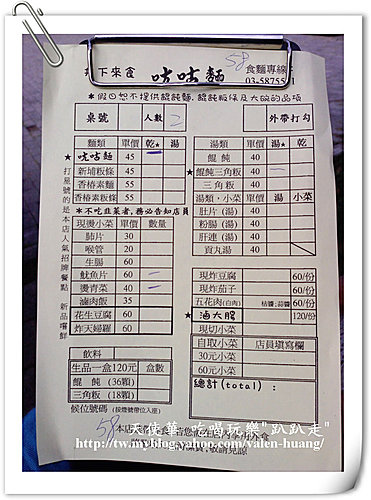 坐下來食 咕咕麵 58 食麵專線:
03-5875511
*假日恕不提供餛飩麵.餛飩粄條及大碗的品項
桌號 人數 2 外帶打勾
麵類 單價 乾★ 湯
★咕咕麵 45
新埔粄條 45
香椿素麵 55
香椿素粄條 55
餛飩 單價 湯★ 乾
餛飩 40
★餛飩三角粄 40
三角粄 40
湯類.小菜 單價 湯 小菜
肚片(湯) 40
粉腸(湯) 40
肝連(湯) 40
貢丸湯 40
★打星號的是本店人氣招牌餐點 新品嚐鮮
*不吃韭菜者,務必告知店員
現燙小菜 單價 數量
肺片 30
喉管 20
牛腸 60
魷魚片 60
燙青菜 40
滷肉飯 35
花生豆腐 60
炸天婦羅 60
現炸豆腐 60/份
現炸茄子 60/份
五花肉(白肉) 桔醬;蒜醬 60/份
★滷大腸 120/份
現切小菜
自取小菜 店員填寫欄
30元小菜
60元小菜
總計(total):
飲料
生品一盒120元 盒數
餛飩(36顆)
三角粄(18顆)
候位號碼(按燈號帶位入座)
58
天使華*吃喝玩樂"趴趴走"
http://tw.myblog.yahoo.com/valen-huang/
敬請見諒